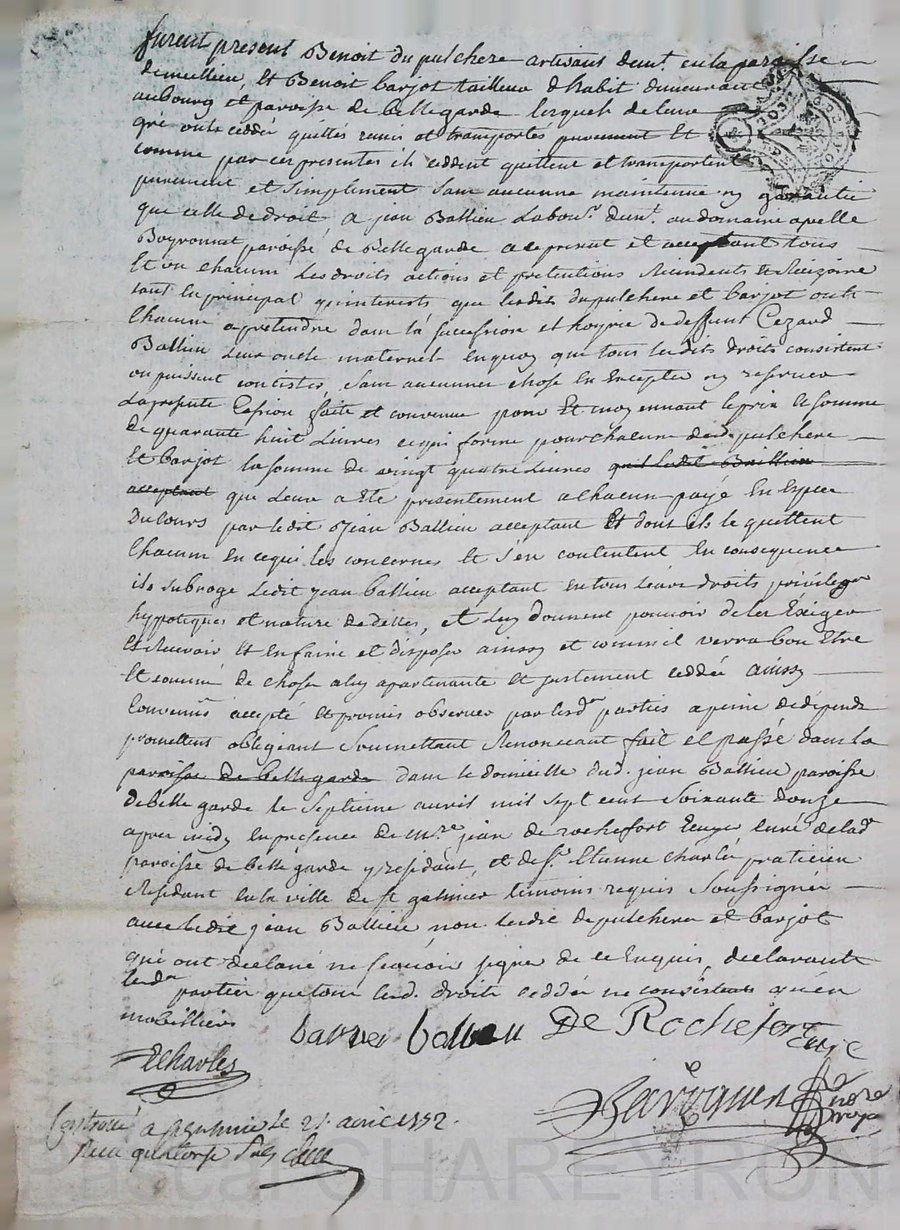 furent présent Benoit du pulchere artisans demt. en la paroisse
de meillieu, Et Benoit barjot tailleur d habit demeurant
au bourg et paroisse de bellegarde lesquels de leur
gré ont ceddé quittés remis et transportés purement Et
comme par ces presentes ils ceddent quittent et transportent
purement et simplement sans aucune maintenue ny garantie
que celle de droit a jean Ballieu Labour. demt. au domaine apellé
Boyronnat paroisse de Bellegarde a ce present et acceptant tous
Et un chacun Les droits actions et pretentions Rescindents et Rescizoire
tant En principal qu'interests que lesdits dupulchere et barjot ont
Chacun a pretendre dans la succession et hoyrie de deffunt Cezard
Ballieu Leur oncle maternel En quoy que tous lesdits droits consistent
ou puissent contister, Sans aucunnes chose En Excepter ny reserver
La presente Cession faite et convenue pour Et moyennant le prix et somme
de quarante huit Livres ce qui forme pour chacun desd. pulchere
Et barjot la somme de vingt quatre Livres quil ledit Baillieu
acceptant que Leur a Eté presentement a chacun payé En Espece
Du Cours par ledit Jean Ballieu acceptant Et dont ils le quittent
Chacun En ce qui les concernes Et s'en contentent En consequence
ils subroge Ledit jean ballieu acceptant en tous leurs droits privileges
hypoteques et nature de dettes, et Luy donnent pouvoir de les Exiger
Et Recevoir Et En faire et disposer ainssy et comme il verra bon Etre
Et comme de chose a luy apartenante Et justement ceddée ainssy
Convenus accepté Et promis observer par lesd. parties a peine de dépends
promettens obligeant Soumettant Renonceant fait et passé dans la
paroisse de bellegarde dans le domicille dud. jean Ballieu paroisse
de bellegarde le Septieme avril mil sept cent Soixante douze
apres midy En présence de mre. jean de rochefort Ecuyer curé de lad.
paroisse de bellegarde y residant, et de sr. Etienne charles praticien
Residant en la ville de st galmier temoins requis Soussignés
avec ledit jean Ballieu non lesdit depulchere et barjot
qui ont déclaré ne scavoir signer de ce Enquis, declarant
lesd. parties que tous lesd. droits ceddés ne consistents qu'en
mobilliers
De Rochefort
ECharles
no.re royal
Contrôlé a st galmier le 21. avril 1772.
Reçu quatorze sols
Pascal CHAREYRON